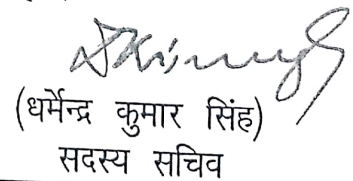 (धर्मेन्द्र कुमार सिंह)
सदस्य सचिव